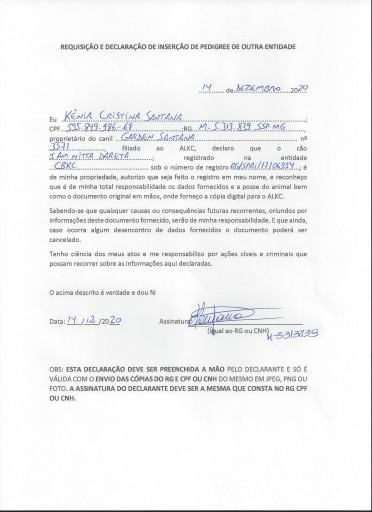 REQUISIÇÃO E DECLARAÇÃO DE INSERÇÃO DE PEDIGREE DE OUTRA ENTIDADE
14 de DEZEMBRO 2020
Eu KÊNIA CRISTINA SANTANA,
CPF 555.849.586-68, RG M-5.313.839 SSP MG,
proprietário do canil GARDEN SANTANA nº
3371, filiado ao ALKC, declaro que o cão
I AM NITTA DARETA, registrado na entidade
CBKC sob o número de registro RG/SPAI/17/06954, é
de minha propriedade, autorizo que seja feito o registro em meu nome, e reconheço
que é de minha total responsabilidade os dados fornecidos e a posse do animal bem
como o documento original em mãos, onde forneço a cópia digital para o ALKC.
Sabendo-se que quaisquer causas ou consequências futuras recorrentes, oriundos por
informações deste documento fornecido, serão de minha responsabilidade. E que ainda,
caso ocorra algum desencontro de dados fornecidos o documento poderá ser
cancelado.
Tenho ciência dos meus atos e me responsabilizo por ações cíveis e criminais que
possam recorrer as informações aqui declaradas.
O acima descrito é verdade e dou fé
Data: 14/12/2020 Assinatura
(Igual ao RG ou CNH)
M-5313839
OBS: ESTA DECLARAÇÃO DEVE SER PREENCHIDA A MÃO PELO DECLARANTE E SÓ É
VÁLIDA COM O ENVIO DAS CÓPIAS DO RG E CPF OU CNH DO MESMO EM JPEG, PNG OU
FOTO. A ASSINATURA DO DECLARANTE DEVE SER A MESMA QUE CONSTA NO RG CPF
OU CNH.